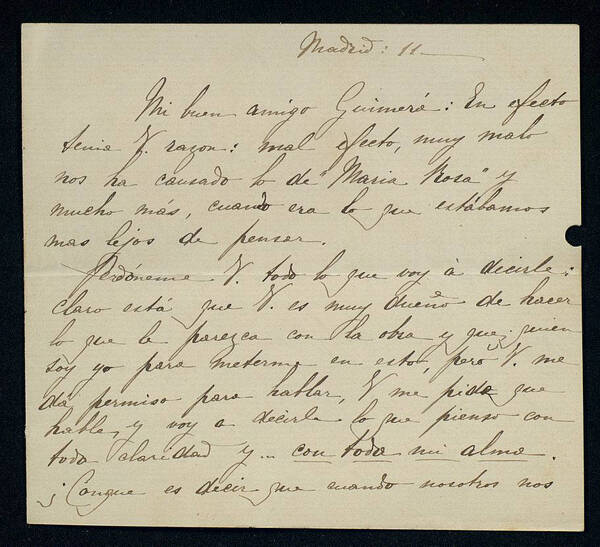 Madrid: 11
Mi buen amigo Guimerá: En efecto
tenia V. razon: mal efecto, muy malo
nos ha causado lo de "Maria Rosa" y
mucho más, cuando era lo que estábamos
mas lejos de pensar.
Perdóneme V. todo lo que voy á decirle:
claro está que V. es muy dueño de hacer
lo que le parezca con la obra y que quien
soy yo para meterme en esto, pero V. me
dá permiso para hablar, V me pide que
hable y voy a decirle lo que pienso con
toda claridad y... con toda mi alma.
¡Conque es decir que cuando nosotros nos